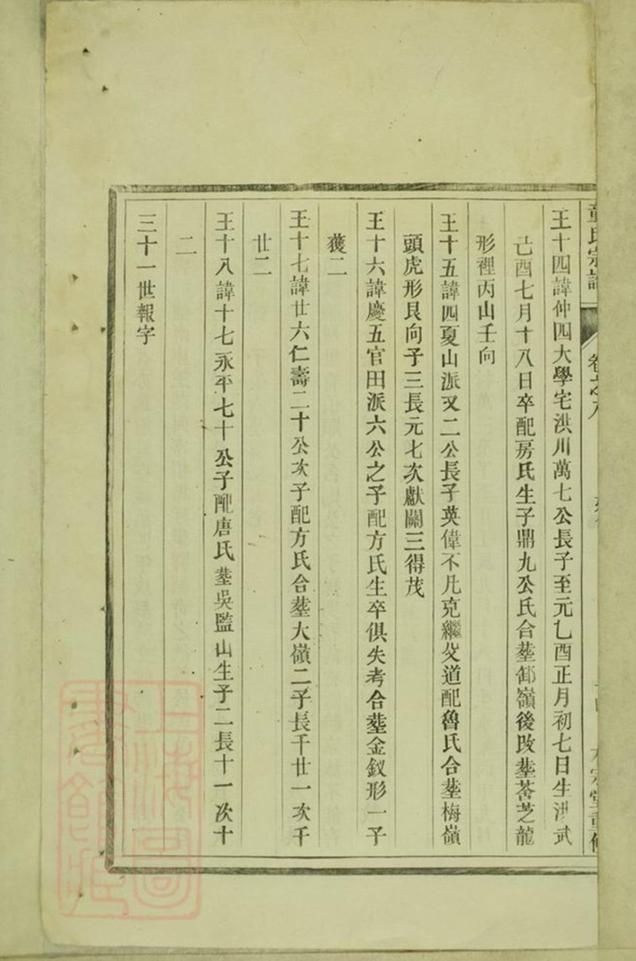 王十四諱仲四大學宅洪川萬七公長子至元乙酉正月初七日生洪武
己酉七月十八日卒配房氏生子鼎九公氏合塟鄣嶺後改塟荅芝龍
形裡丙山壬向
王十五諱四夏山派又二公長子英偉不凡克繼父道配魯氏合塟梅嶺
頭虎形艮向子三長元七次獻關三得茂
王十六諱慶五官田派六公之子配方氏生卒俱失考合塟金釵形一子
獲二
王十七諱廿六仁壽二十公次子配方氏合塟大嶺二子長千廿一次千
廿二
王十八諱十七永平七十公子配唐氏塟吳監山生子二長十一次十
二
三十一世報字
上海圖